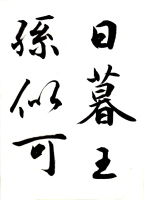 日暮王
孫似可